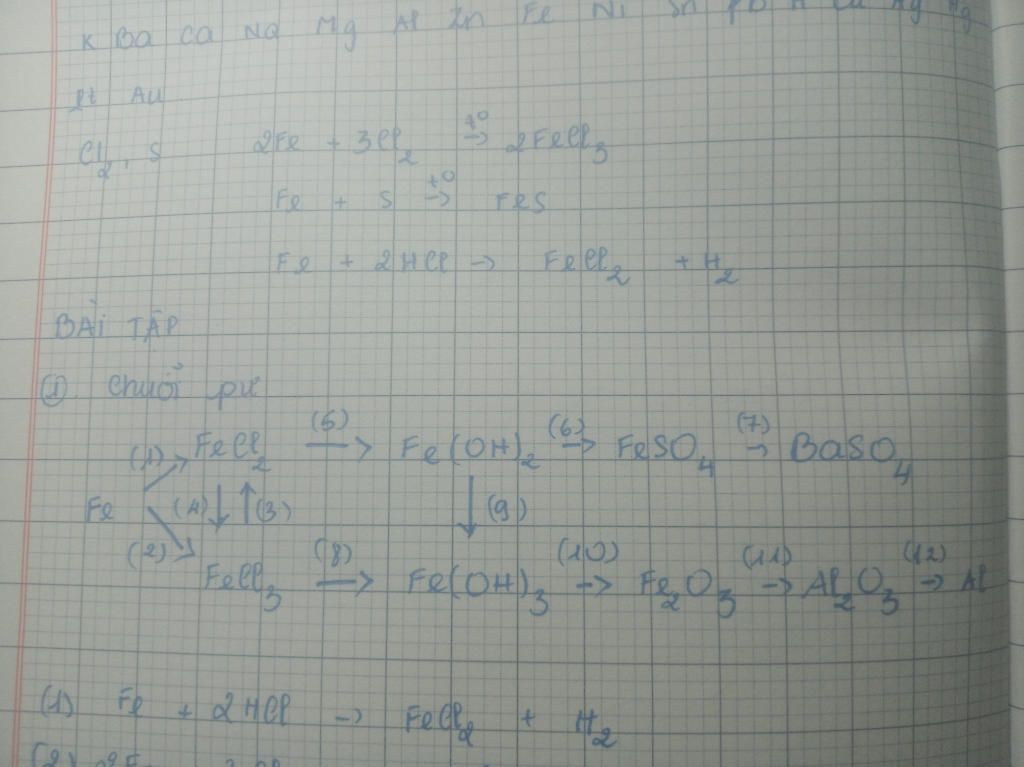 K Ba Ca Na Mg Al Zn Fe Ni Sn Pb H Cu Ag Hg
Pt Au
Cl₂, S 2Fe + 3Cl₂ t° → 2FeCl₃
Fe + S t° → FeS
Fe + 2HCl → FeCl₂ + H₂
BÀI TẬP
① Chuỗi pư
(1) FeCl₂ (5) → Fe(OH)₂ (6) → FeSO₄ (7) → BaSO₄
Fe (4) ↓ ↑ (3) ↓ (9)
(2) FeCl₃ (8) → Fe(OH)₃ (10) → Fe₂O₃ (11) → Al₂O₃ (12) → Al
(1) Fe + 2HCl → FeCl₂ + H₂
(2) 2Fe